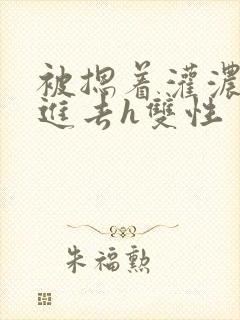 被摁着灌濃
進去h雙性
朱福勲